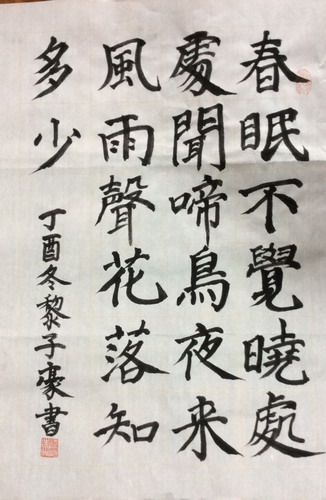 春眠不覺曉處
處聞啼鳥夜来
風雨聲花落知
多少
丁酉冬黎子豪書